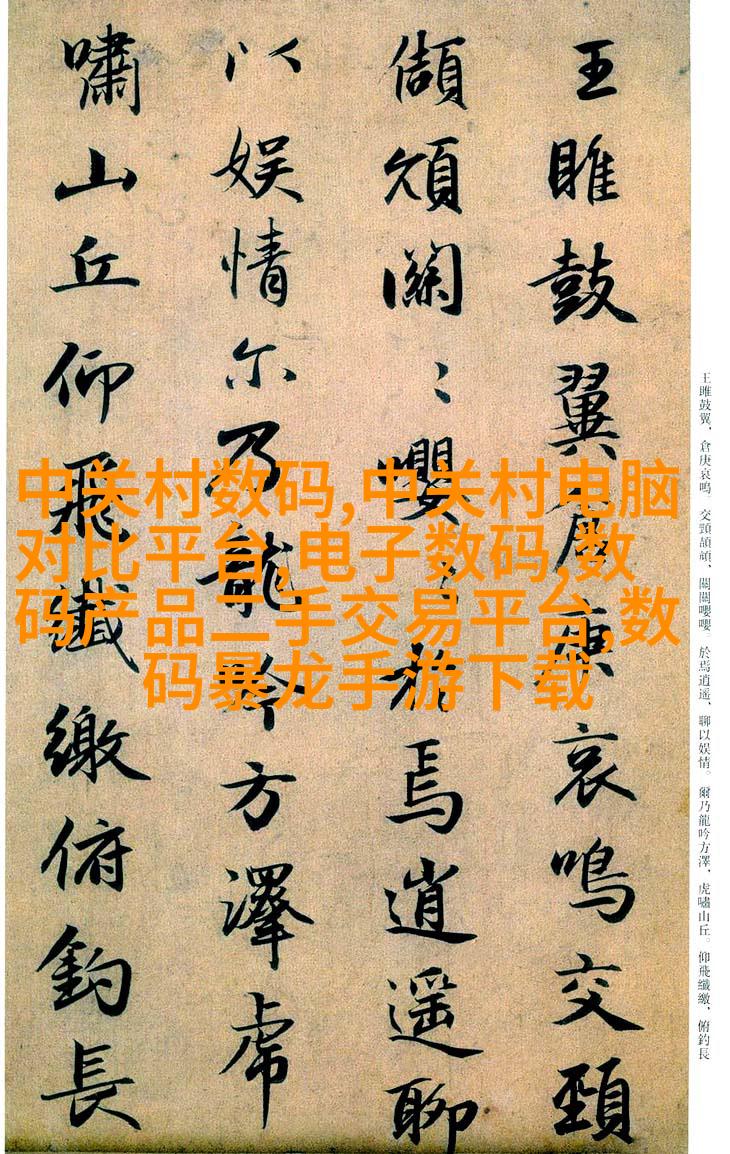 王雎鼓翼倉庚哀鳴交頸
頡頏關〻嚶〻於焉逍遥聊
以娱情尔乃龍吟方澤虎
嘯山丘仰飛纖繳俯釣長
王雎鼓翼、倉庚哀鳴。交頸頡頏、關關嚶嚶。於焉逍遥、聊以娱情。爾乃龍吟方澤、虎嘯山丘。仰飛纖繳、俯釣長
中关村数码,中关村电脑
对比平台,电子数码,数
码产品二手交易平台,数
码暴龙手游下载